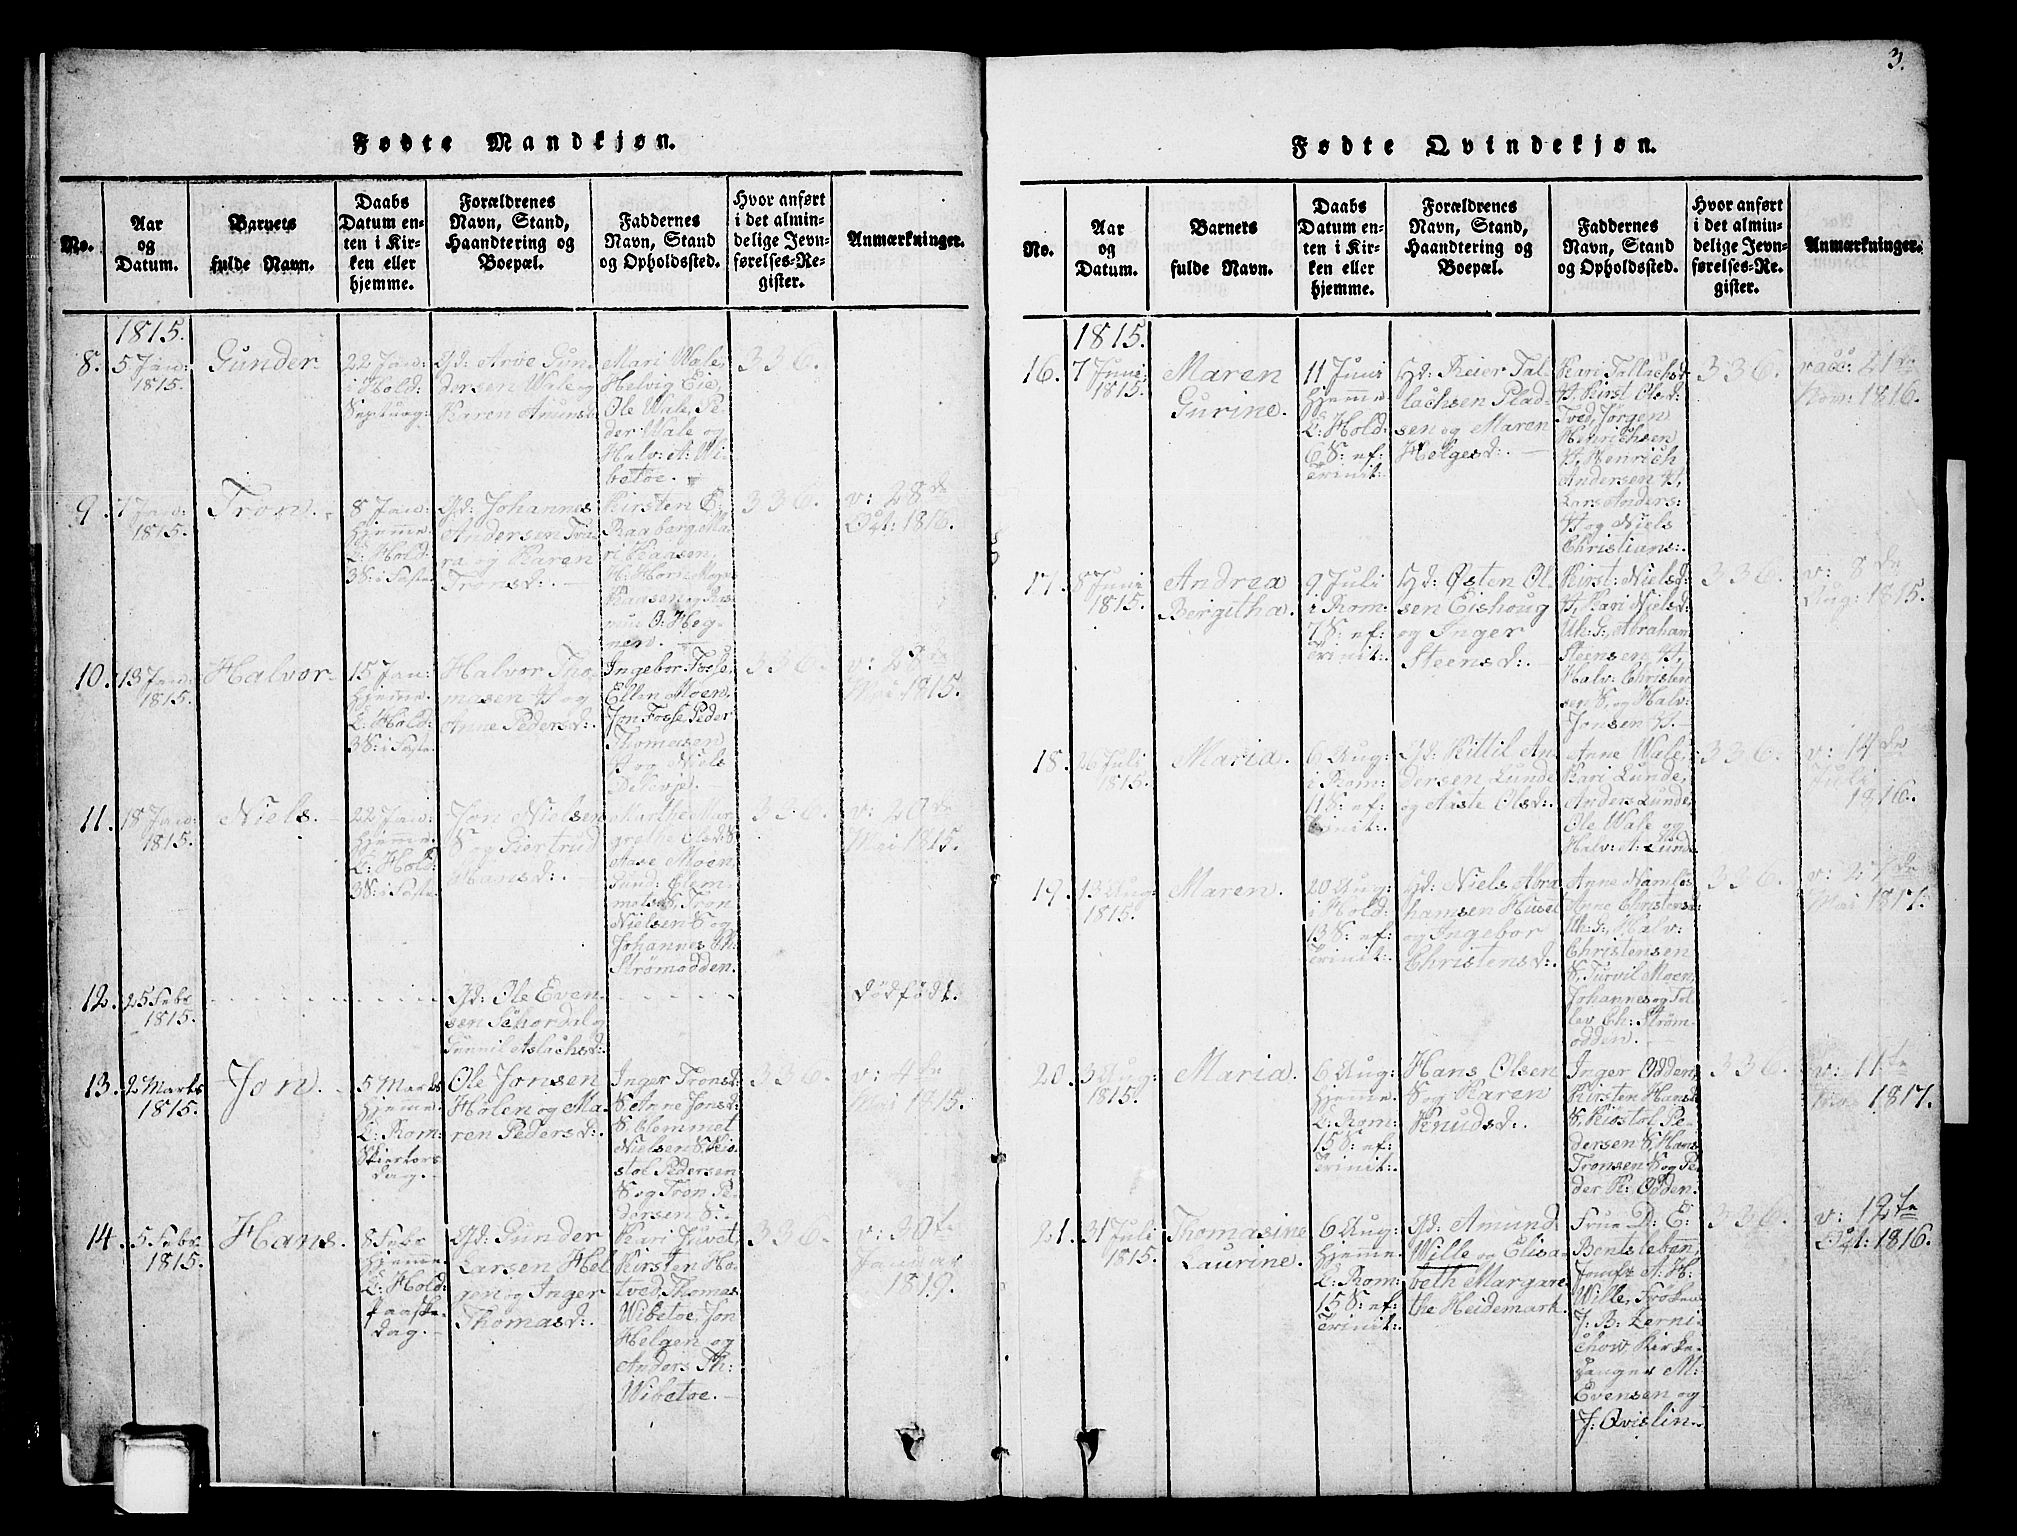 3.
Fødte Mandkjøn.
No.
Aar
og
Datum.
Barnets
fulde Navn.
Daabs
Datum en-
ten i Kir-
ken eller
hjemme.
Forældrenes
Navn, Stand,
Haandtering og
Boepæl.
Faddernes
Navn, Stand
og Opholdssted.
Hvor anført
i det almin-
delige Jevn-
førelses-Re-
gister.
Anmærkninger.
1815.
8.
5 Jan:
1815.
Gunder
22 Jan:
i Hold:
Septuag:
Gd: Arve Gun
dersen Wale og
Karen Amunsd:
Mari Wale,
Helvig Eie,
Ole Wale, Pe-
der Wale og
Halv: A: Wi-
betoe.
336.
9.
7 Jan:
1815.
Tron.
8 Jan:
hjemme
C: Hold:
3 S: i Faste
Gd: Johannes
Andersen
ra og Karen
Tronsd:.
Kirsten E:
Raaberg, Ma-
ri Kaasen,
H: Horn, Mogn
Kaasen og Ras
mus O: Heg-
nen.
336.
v: 28de
Oct: 1816.
10.
13 Jan:
1815.
Halvor
15 Jan:
hjemme
C: Hold:
3 S: i Faste
Halvor Tho-
masen H og
Anne Pedersd:.
Ingebor Fosse,
Ellen Moen,
Jon Fosse, Peder
Thomasen
H og Niels
336.
v: 28de
Mai 1815.
11.
18 Jan:
1815.
Niels.
22 Jan:
hjemme
C: Hold:
3 S: i Faste
Jon Nielsen
S og Giertrud
Hansd:.
Marthe Mar-
grethe Olsd: S
Aase Moen,
Gund: Clem-
metsd: S, Tron
Nielsen S og
Johannes Ch:
Strømodden.
336.
v: 20de
Mai 1815.
12.
25 Febr
1815.
Gd: Ole Even-
sen Schordal og
Gunnil Aslachsd:.
dødfødt.
13.
2 Marts
1815.
Jon.
5 Marts
hjemme
C: Rom:
Skiertors
dag.
Ole Jonsen
Holen og Ma-
ren Pedersd:.
Inger Tronsd:
S. Anne Jonsd:
S. Clemmet
Nielsen S. Kio-
stol Pedersen
S og Tron Pe-
dersen S:.
336.
v: 4de
Mai 1815.
14.
5 Febr
1815.
Hans.
8 Febr
hjemme
C: Hold:
Paaske
dag.
Gd: Gunder
Larsen Hel
gen og Inger
Thomasd:.
Kari Juvet
Kirsten Ho-
tved, Thomas
Wibetoe, Jon
Helgen og
Anders Th:
Wibetoe.
336.
v: 20de
Januar
1819.
Fødte Qvindekjøn.
No.
Aar
og
Datum.
Barnets
fulde Navn.
Daabs
Datum en-
ten i Kir-
ken eller
hjemme.
Forældrenes
Navn, Stand,
Haandtering og
Boepæl.
Faddernes
Navn, Stand
og Opholdssted.
Hvor anført
i det almin-
delige Jevn-
førelses-Re-
gister.
Anmærkninger.
1815.
16.
7 Juni
1815.
Maren
Gurine.
11 Juni
hjemme
C: Hold:
6 S: ef:
Trinit:.
Gd: Reier Tal-
lachsen Plad-
sen og Maren
Helgesd:.
Kari Tallachsd:
H, Kirst Olsd:
Tved, Jørgen
Henrichsen
H, Henrich
Andersen H,
Lars Anders:
H og Niels
Christians:.
336.
vacc: 21de
Nov: 1816.
17.
5 Juni
1815.
Andrea
Bergitha.
9 Juli
i Rom:
7 S: ef:
Trinit:
Gd: Østen Ol-
sen Eishoug
og Inger
Steensd:.
Kirst: Nielsd:
H, Kari Nielsd:
Uh: G:, Abraham
Steensen H,
Halv: Christen
sen S, og Halv:
Jonsen H.
336.
v: 8de
Aug: 1815.
18.
26 Juli
1815.
Maria.
6 Aug:
i Rom:
11 S: ef:
Trinit:.
Gd: Kittil An-
dersen Lunde
og Aaste Olsd:.
Anne Wale,
Kari Lunde,
Anders Lunde,
Ole Wale og
Halv: A: Lund:
336.
v: 14de
Juli
1816.
19.
13 Aug:
1815.
Maren.
20 Aug:
i Hold:
13 S: ef:
Trinit:.
Gd: Niels Abra
hamsen Huset
og Ingebor
Christensd:.
Anne Namløs
Anne Christensd:
Uh: G:, Halv:
Christensen
S, Turvil Moen,
Johannes og Tol-
lev Ch: Strøm-
odden.
336.
v: 27de
Mai 1817.
20.
3 Aug:
1815.
Maria.
6 Aug:
hjemme
C: Rom:
15 S: ef:
Trinit:.
Hans Olsen
S og Karen
Knudsd:.
Inger Odden,
Kirsten Hansd:
S, Kiøstol Pe-
dersen S, Hans
Tronsen S og Pe-
der Pe: Odden.
336.
v: 11te
1817.
21.
31 Juli
1815.
Thomasine
Laurine.
6 Aug:
hjemme
C: Rom:
15 S: ef:
Trinit:.
Gd: Amund
Wille og Elisa-
beth Margare-
the Heidemark.
Frue D: E:
Bentsleben,
Jomfr A: H:
Wille, Frøken
J: B: Zerni-
chow, Kirke-
sanger M:
Evensen og
J: Qvislin.
336.
v: 12te
Oct: 1816.